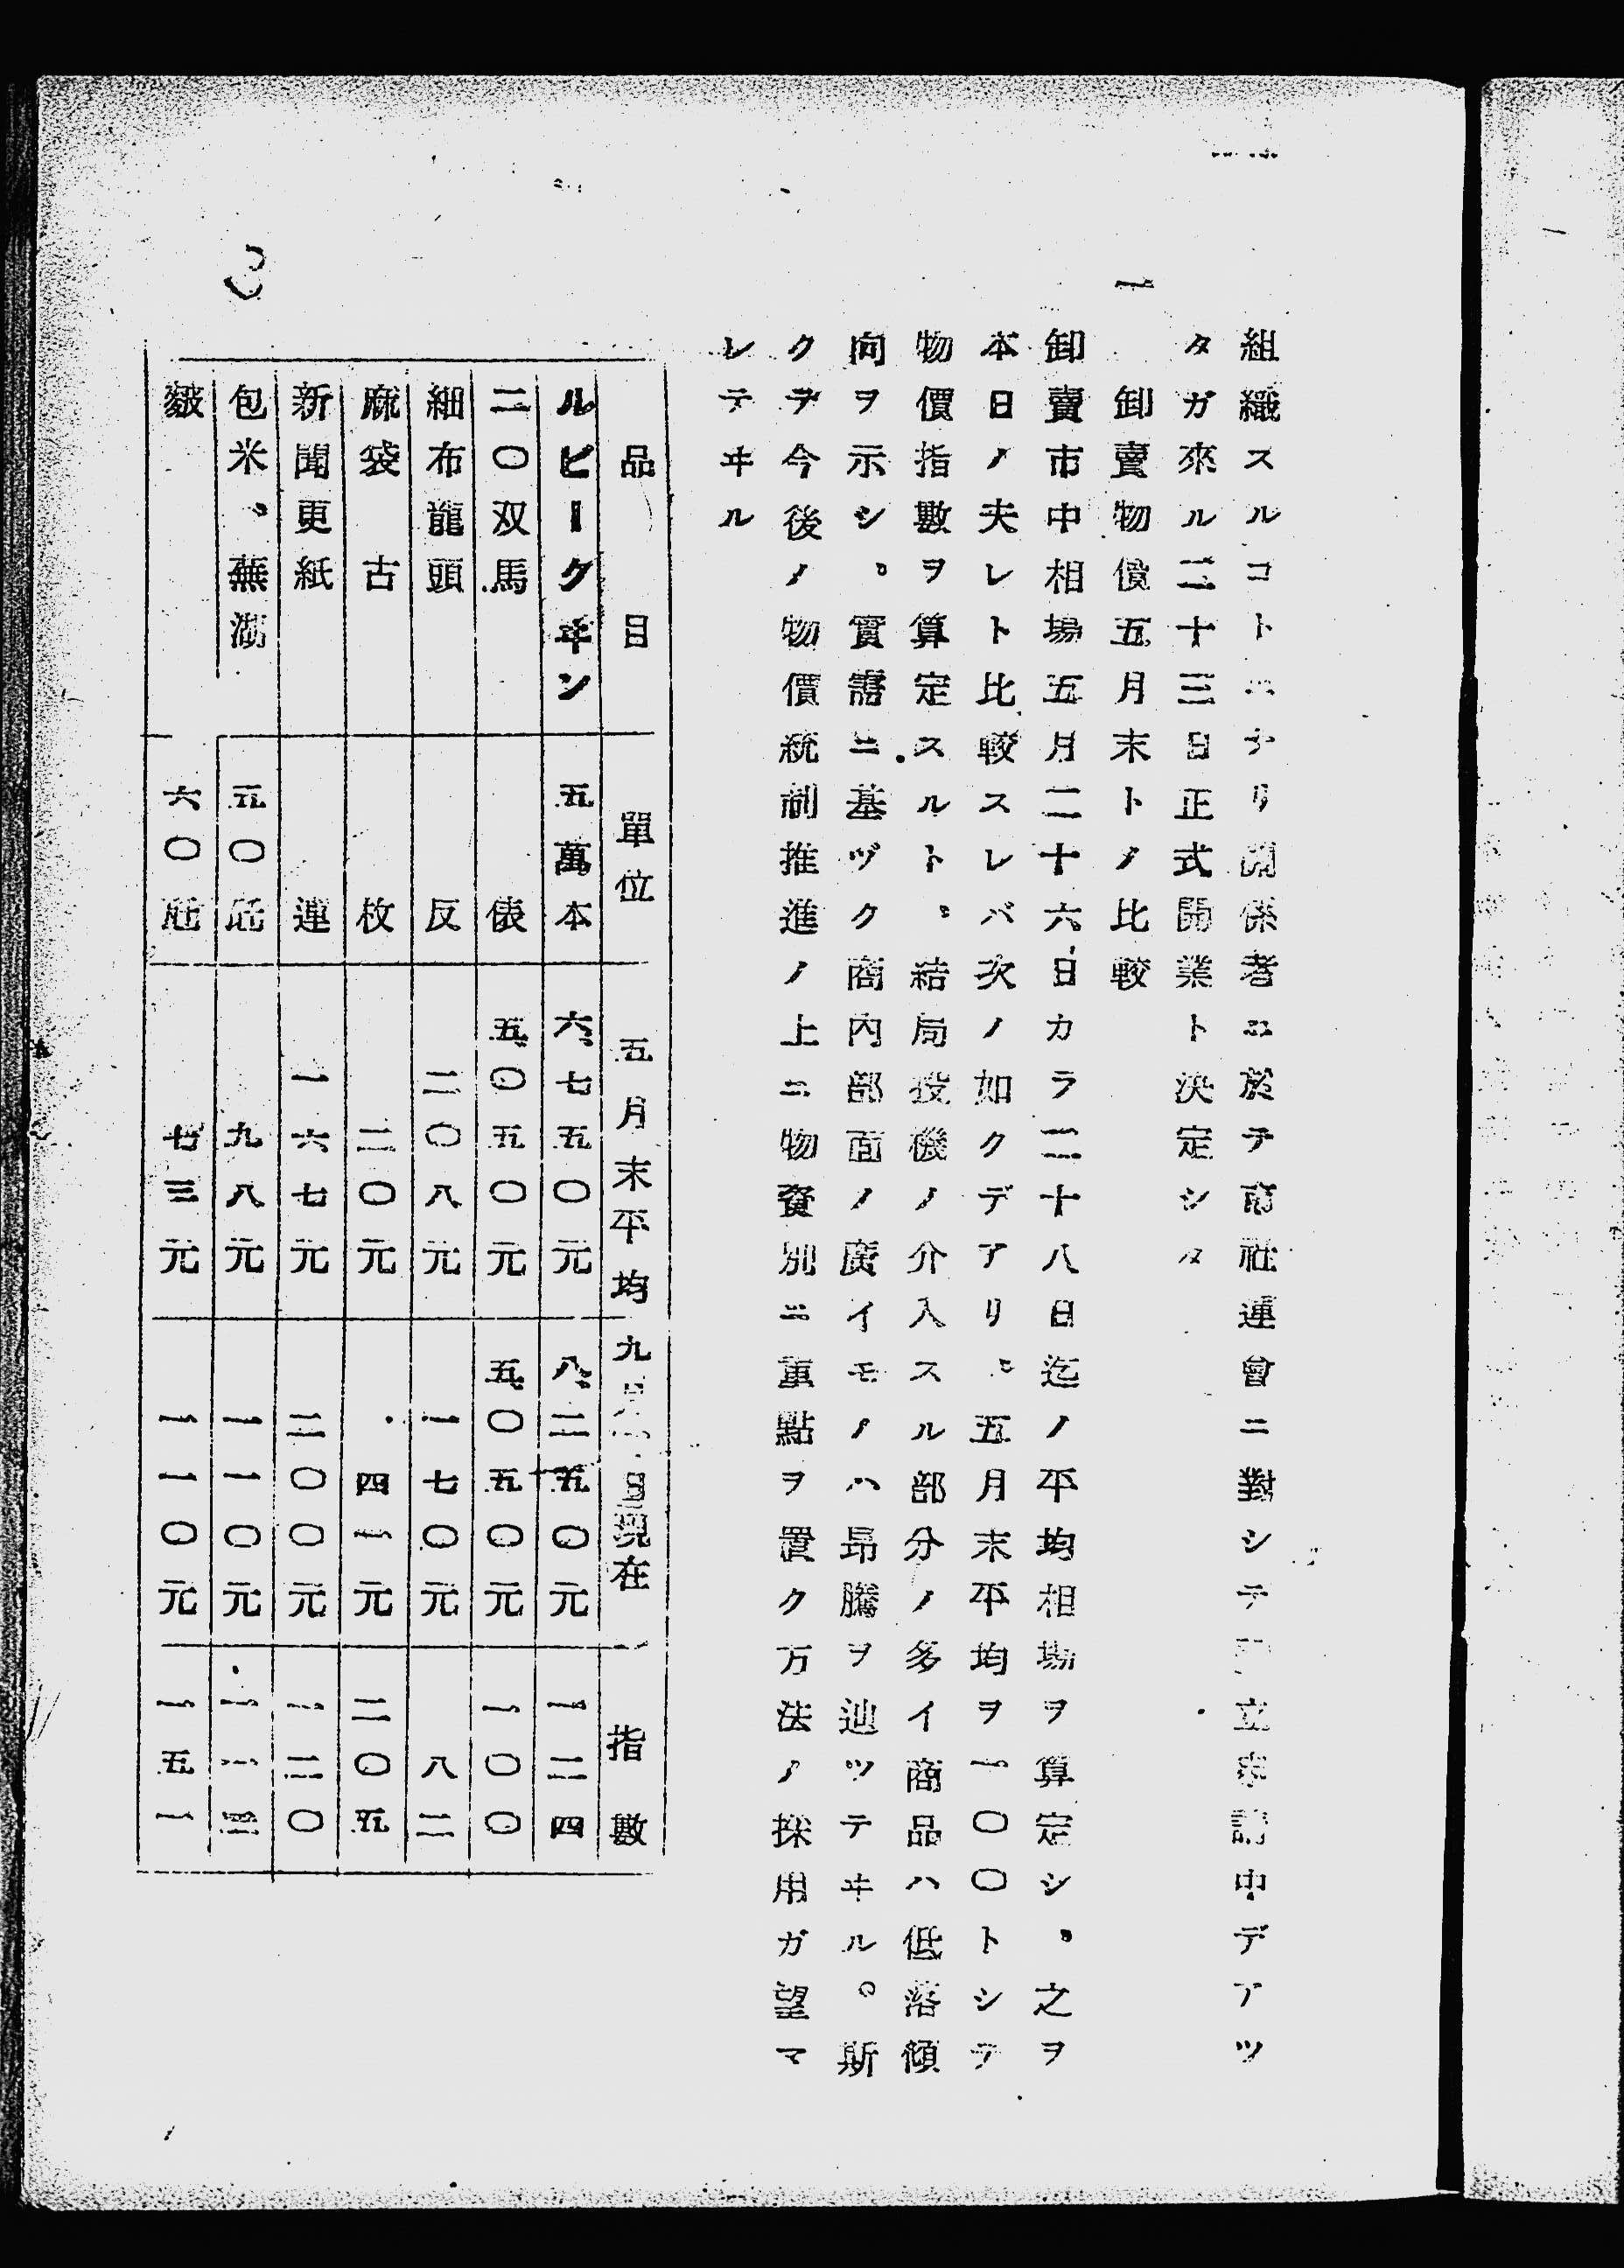 組織スルコトニナリ關係者ニ於テ市社連會ニ對シテ立申請中デアツ
タガ來ル二十三日正式開業ト決定シタ
一 卸賣物價五月末トノ比較
卸賣市中相場五月二十六日カラ二十八日迄ノ平均相場ヲ算定シ、之ヲ
本日ノ夫レト比較スレバ次ノ如クデアリ、五月末平均ヲ一〇〇トシテ
物價指數ヲ算定スルト、結局投機ノ介入スル部分ノ多イ商品ハ低落傾
向ヲ示シ。實需ニ基ヅク商內部面ノ廣イモノハ昂騰ヲ辿ツテヰル。斯
クテ今後ノ物價統制推進ノ上ニ物資別ニ重點ヲ置ク方法ノ採用ガ望マ
レテヰル
品目 單位 五月末平均 九月 日現在 指數
ルビークヰン 五萬本 六、七五〇元 八、二五〇元 一二四
二〇双馬 俵 五、〇五〇元 五、〇五〇元 一〇〇
細布龍頭 反 二〇八元 一七〇元 八二
麻袋 古 枚 二〇元 四一元 二〇五
新聞更紙 連 一六七元 二〇〇元 一二〇
包米、蕪湖 五〇瓩 九八元 一一〇元 一一三
麩 六〇瓩 七三元 一一〇元 一五一